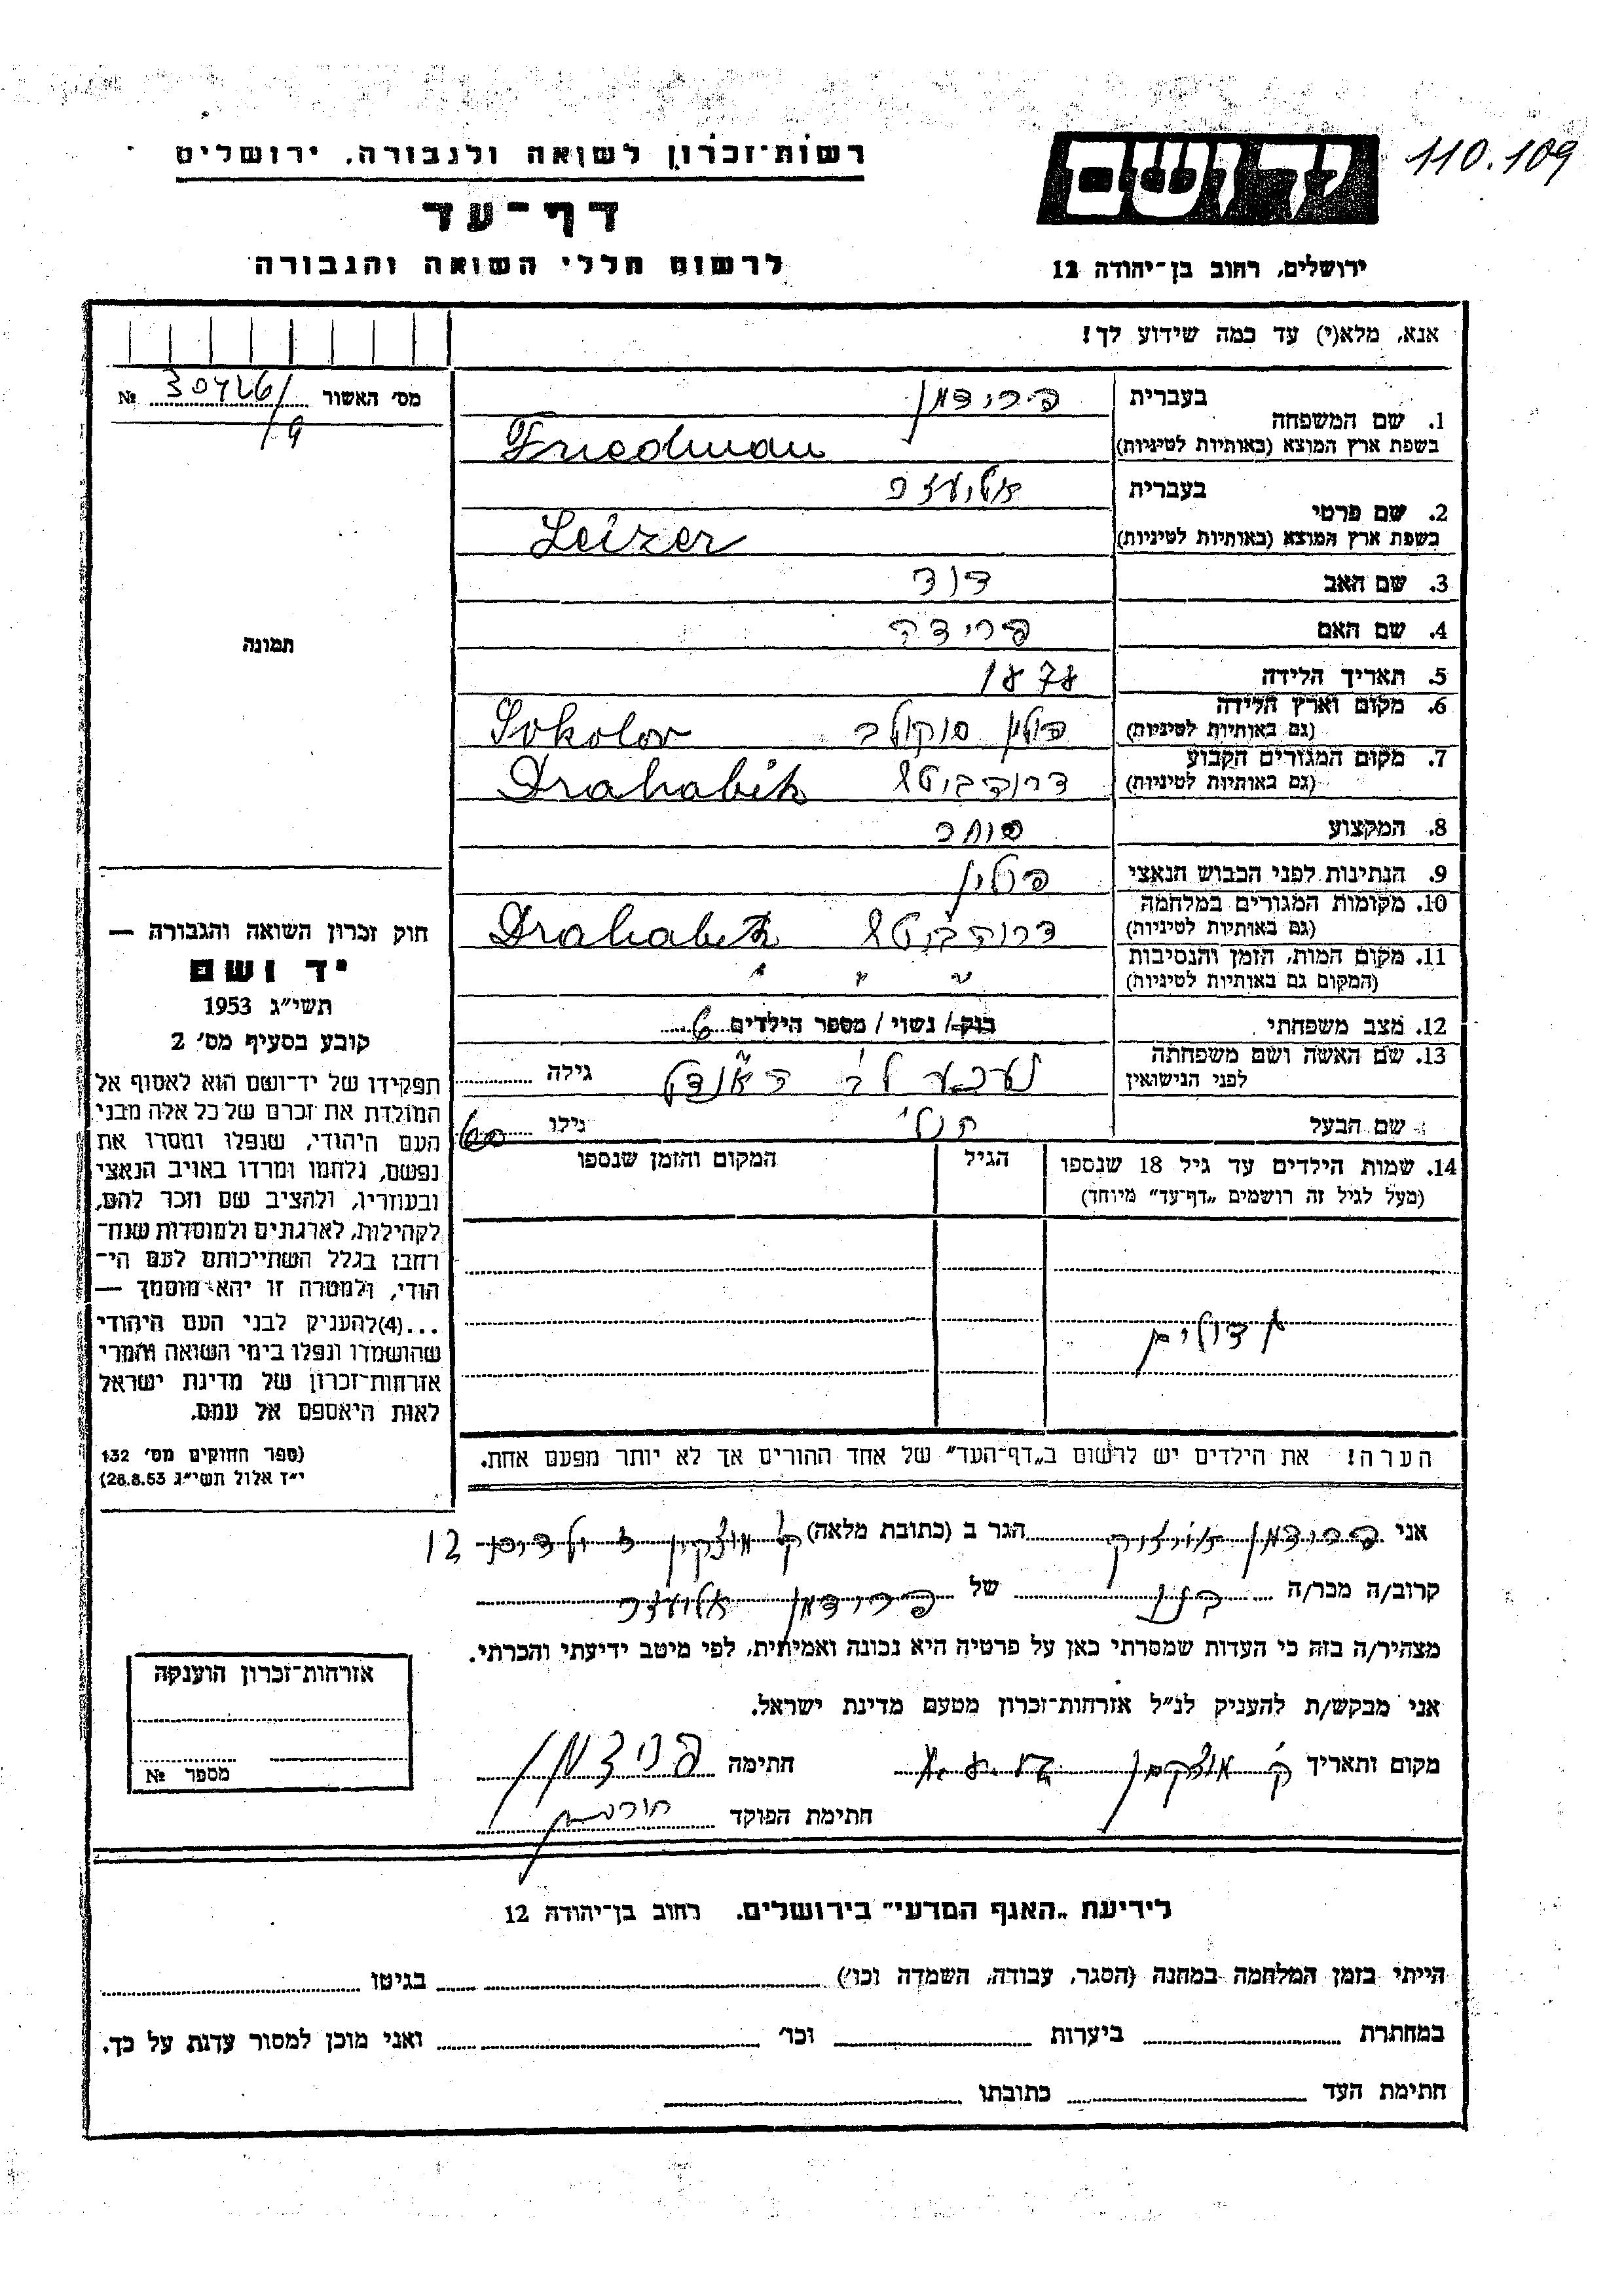 רשות־זכרון לשואה ולגבורה, ירושלים
110.109
יד ושם
דף־עד
לרשום חללי השואה והגבורה
ירושלים, רחוב בן־יהודה 12
אנא, מלא(י) עד כמה שידוע לך!
מס׳ האשור № 30426/
/9
1. שם המשפחה
בעברית פרידמן
בשפת ארץ המוצא (באותיות לטיניות) Friedman
2. שם פרטי
בעברית אליעזר
בשפת ארץ המוצא (באותיות לטיניות) Leizer
3. שם האב דוד
4. שם האם פרידה
5. תאריך הלידה 1878
6. מקום וארץ הלידה פולין סוקולב Sokolov
(גם באותיות לטיניות)
7. מקום המגורים הקבוע
(גם באותיות לטיניות)
8. המקצוע סוחר
9. הנתינות לפני הכבוש הנאצי פולין
10. מקומות המגורים במלחמה
(גם באותיות לטיניות)
11. מקום המות, הזמן והנסיבות " " "
(המקום גם באותיות לטיניות)
12. מצב משפחתי רוק/ נשוי / מספר הילדים 6
13. שם האשה ושם משפחתה
לפני הנישואין
גילה
שם הבעל גילו 60
14. שמות הילדים עד גיל 18 שנספו הגיל המקום והזמן שנספו
(מעל לגיל זה רושמים „דף־עד” מיוחד)
הערה! את הילדים יש לרשום ב„דף־העד” של אחד ההורים אך לא יותר מפעם אחת.
תמונה
חוק זכרון השואה והגבורה —
יד ושם
תשי״ג 1953
קובע בסעיף מס׳ 2
תפקידו של יד־ושם הוא לאסוף אל
המולדת את זכרם של כל אלה מבני
העם היהודי, שנפלו ומסרו את
נפשם, נלחמו ומרדו באויב הנאצי
ובעוזריו, ולהציב שם וזכר להם,
לקהילות, לארגונים ולמוסדות שנח־
רבו בגלל השתייכותם לעם הי־
הודי, ולמטרה זו יהא מוסמך —
...(4)להעניק לבני העם היהודי
שהושמדו ונפלו בימי השואה והמרי
אזרחות־זכרון של מדינת ישראל
לאות היאספם אל עמם.
(ספר החוקים מס׳ 132
י״ז אלול תשי״ג 28.8.53)
אני פרידמן הגר ב (כתובת מלאה) ק מוצקין 12
קרוב/ה מכר/ה בנו של פרידמן אליעזר
מצהיר/ה בזה כי העדות שמסרתי כאן על פרטיה היא נכונה ואמיתית, לפי מיטב ידיעתי והכרתי.
אני מבקש/ת להעניק לנ״ל אזרחות־זכרון מטעם מדינת ישראל.
מקום ותאריך ק מוצקין חתימה פרידמן
חתימת הפוקד
אזרחות־זכרון הוענקה
מספר №
לידיעת „האגף המדעי” בירושלים, רחוב בן־יהודה 12
הייתי בזמן המלחמה במחנה (הסגר, עבודה, השמדה וכו׳) בגיטו
במחתרת ביערות וכו׳ ואני מוכן למסור עדות על כך.
חתימת העד כתובתו